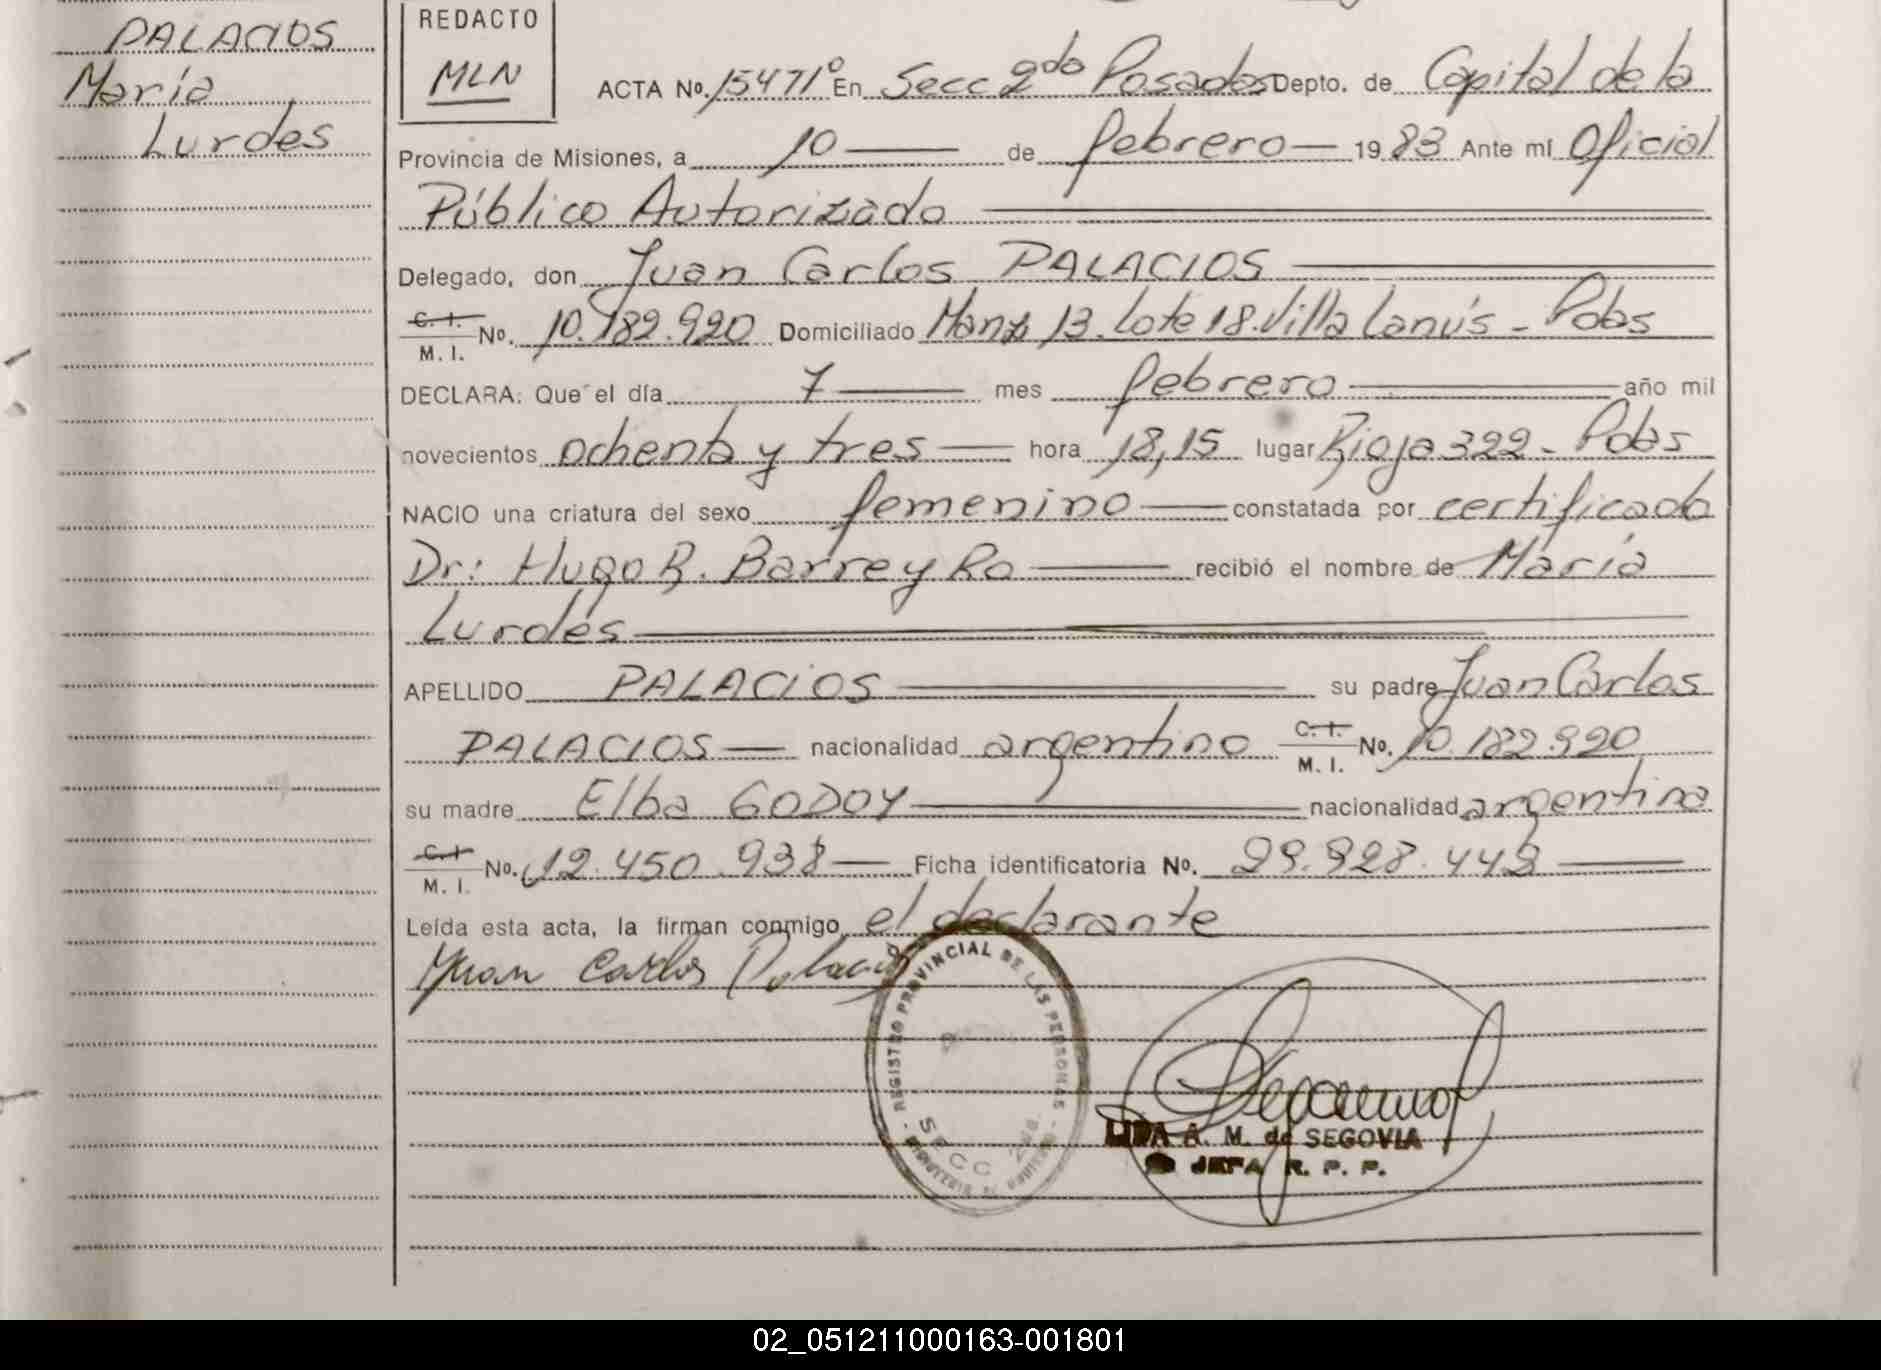 PALACIOS
María
Lurdes
REDACTO
MLN
ACTA No. 15471º En Secc 2da Posadas Depto. de Capital de la
Provincia de Misiones, a 10 de febrero 1983 Ante mí Oficial
Público Autorizado
Delegado, don Juan Carlos PALACIOS
C. I.
M. I. No. 10.182.920 Domiciliado Manz 13. Lote 18. Villa Lanús - Pdas
DECLARA: Que el día 7 mes febrero año mil
novecientos ochenta y tres hora 18,15 lugar Rioja 322 - Pdas
NACIO una criatura del sexo femenino constatada por certificado
Dr: Hugo R. Barreyro recibió el nombre de María
Lurdes
APELLIDO PALACIOS su padre Juan Carlos
PALACIOS nacionalidad argentino C. I. M. I. No. 10.182.920
su madre Elba GODOY nacionalidad argentina
C. I.
M. I. No. 12.450.938 Ficha identificatoria No. 29.928.442
Leída esta acta, la firman conmigo, el declarante
Juan Carlos Palacios
REGISTRO PROVINCIAL DE LAS PERSONAS
SECC 2da.
A. M. de SEGOVIA
JEFA R. P. P.
02_051211000163-001801